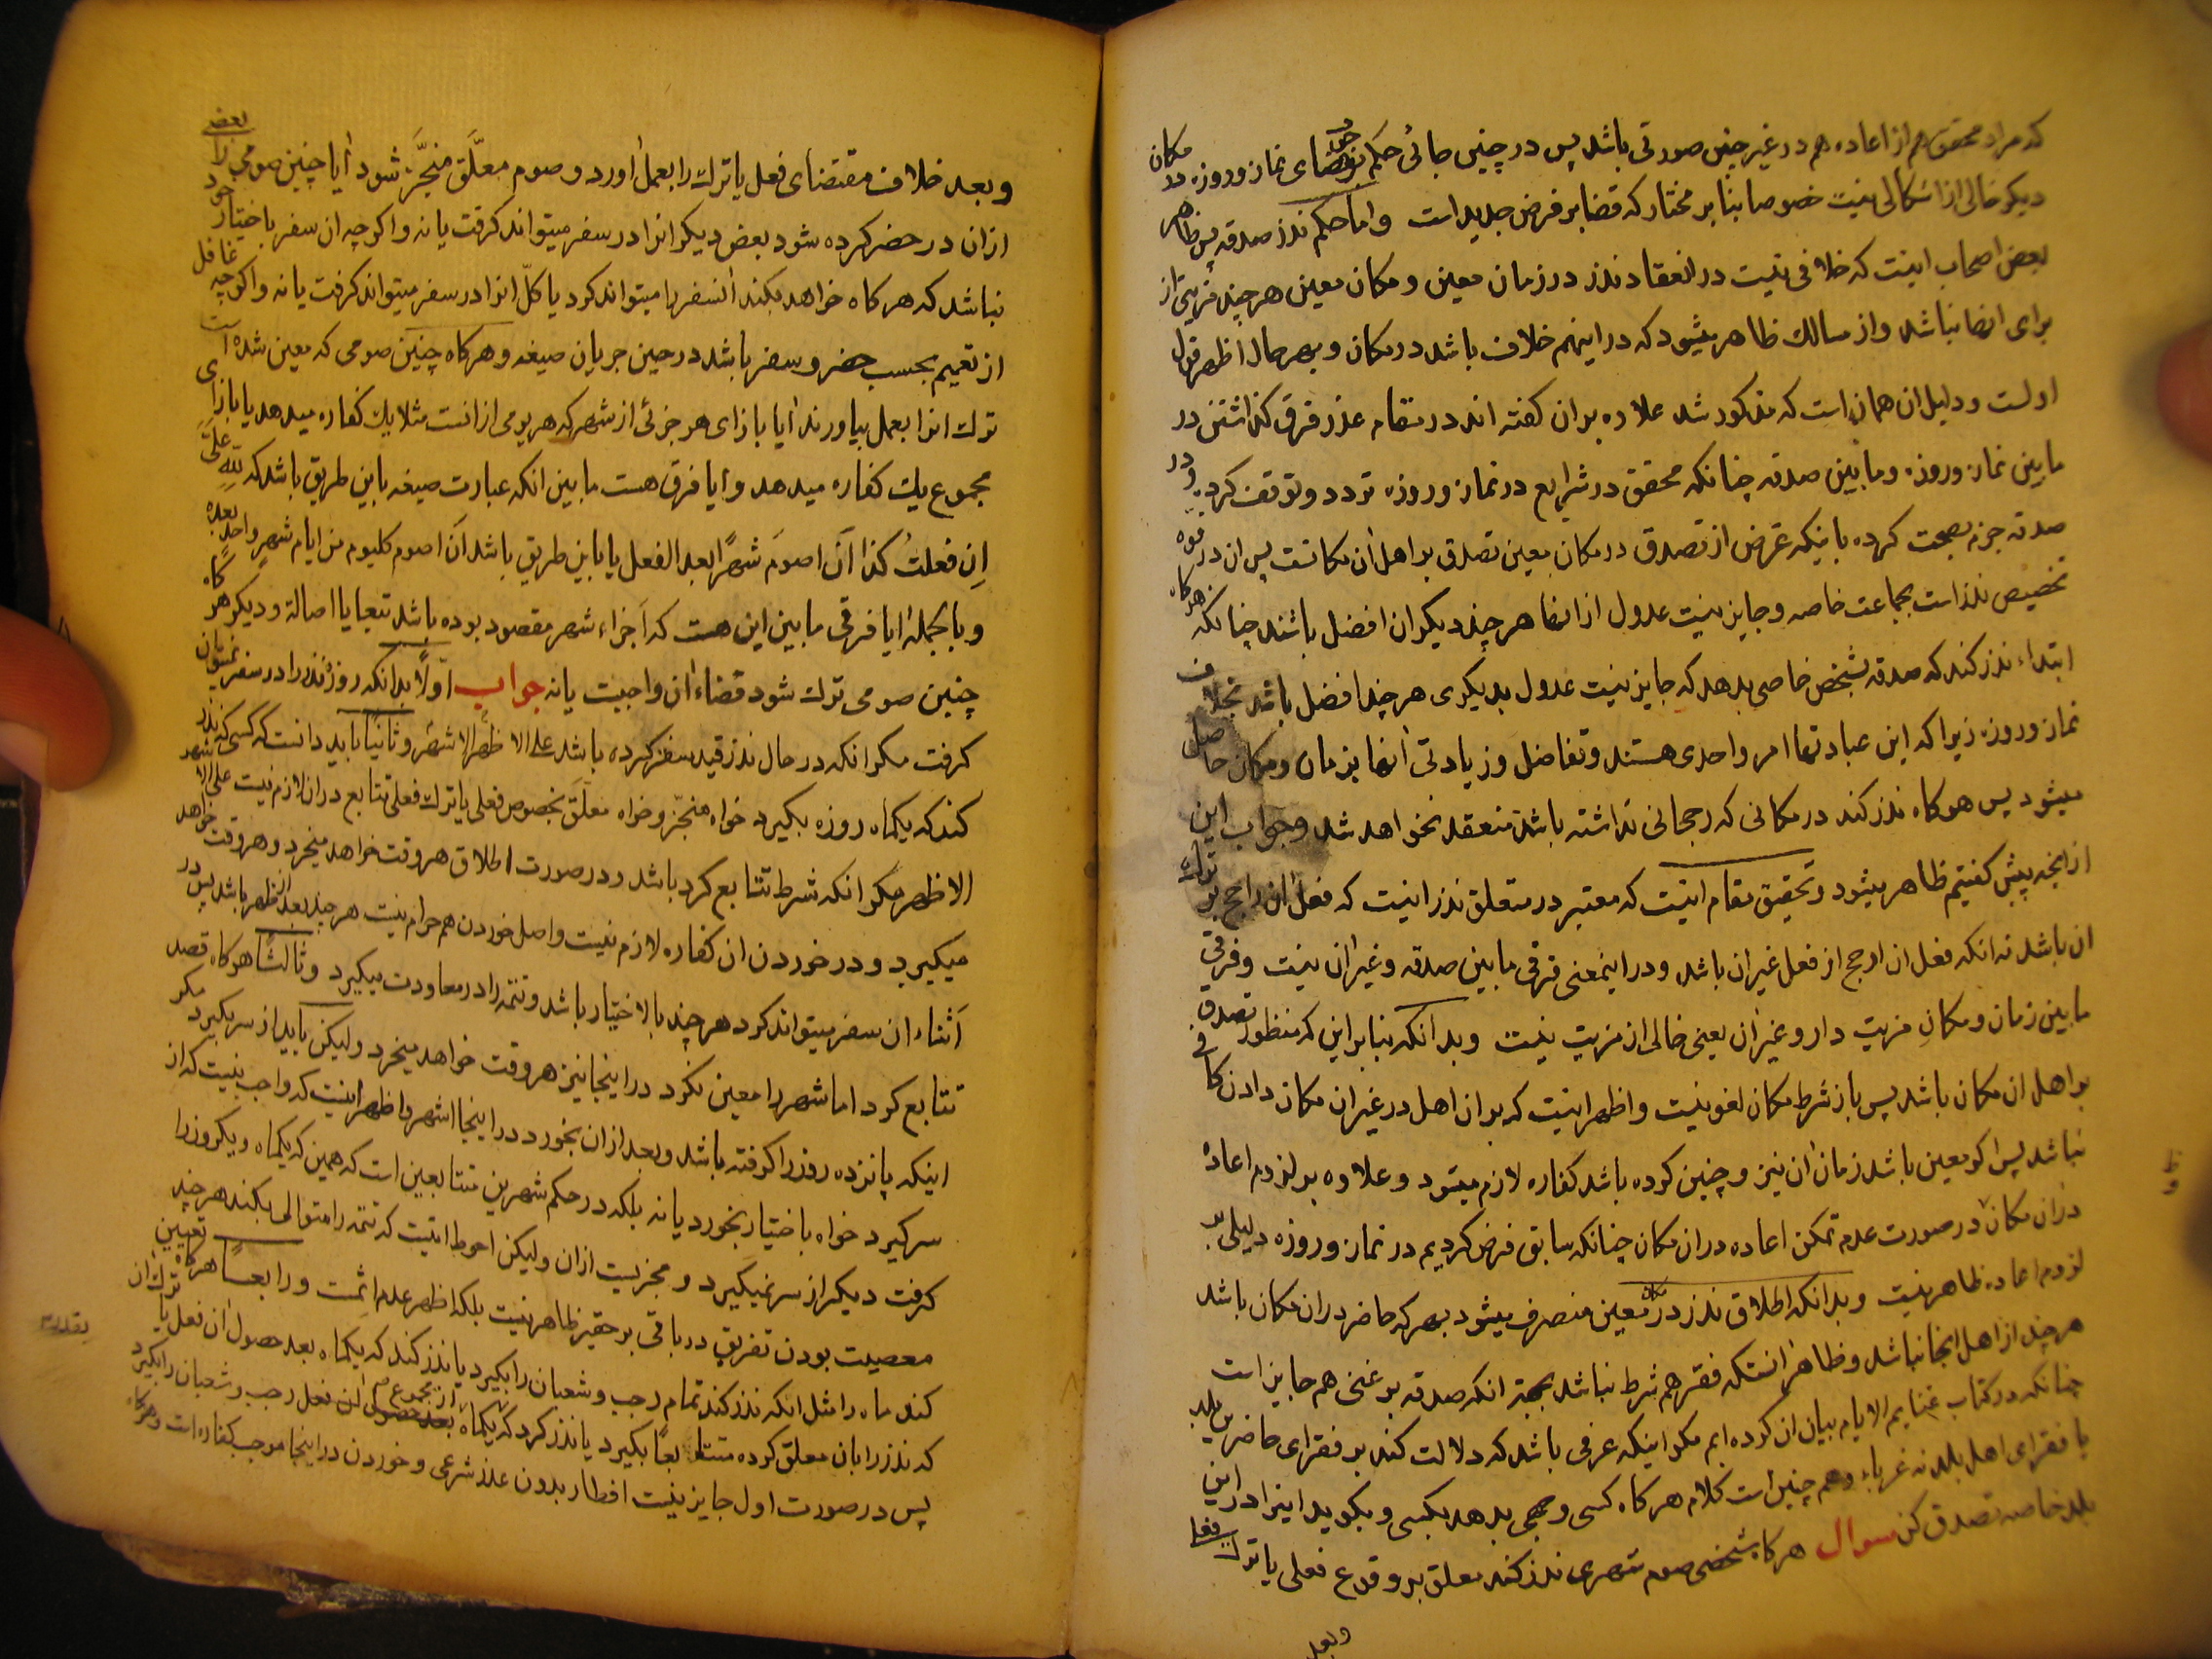 که مراد محقق هم از اعاده هم در غیر چنین صورتی باشد پس در چنین جائی حکم بقضای نماز و روزه در مکان
دیکر خالی از اشکالی نیست خصوصا بنا بر مختار که قضا بر فرض جدید است واما حکم نذر صدقه پس ظاهر
بعض اصحاب اینست که خلافی نیست در انعقاد نذر در زمان معین و مکان معین هر چند مزیتی از
برای انها نباشد واز مسالك ظاهر میشود که در اینهم خلاف باشد در مکان و بهر حال اظهر قول
اولست و دلیل ان همان است که مذکور شد علاوه بر ان کفته اند در مقام عذر فرق کذاشتن در
مابین نماز و روزه و مابین صدقه چنانکه محقق در شرایع در نماز و روزه تردد و توقف کرده و در
صدقه جزم بصحت کرده باینکه غرض از تصدق در مکان معین تصدق بر اهل ان مکانست پس ان در قوه
تخصیص نذر است بجماعت خاصه و جایز نیست عدول از انها هر چند دیکران افضل باشند چنانکه هرکاه
ابتداء نذر کند که صدقه بشخص خاصی بدهد که جایز نیست عدول بدیکری هر چند افضل باشد بخلاف
نماز و روزه زیرا که این عبادتها امر واحدی هستند و تفاضل و زیادتی انها بزمان و مکان حاصل
میشود پس هرکاه نذر کند در مکانی که رجحانی نداشته باشد منعقد نخواهد شد و جواب این
از انچه پیش کفتیم ظاهر میشود و تحقیق مقام اینست که معتبر در متعلق نذر اینست که فعل ان راجح بر ترك
ان باشد نه انکه فعل ان ارجح از فعل غیر ان باشد و در اینمعنی فرقی مابین صدقه و غیر ان نیست و فرقی
مابین زمان و مکان مزیت دار و غیر ان یعنی خالی از مزیت نیست وبدانکه بنا بر این که منظور تصدق
بر اهل ان مکان باشد پس باز شرط مکان لغو نیست و اظهر اینست که بر ان اهل در غیر ان مکان دادن کافی
نباشد پس اکر معین باشد زمان ان نیز و چنین کرده باشد کفاره لازم میشود و علاوه بر لزوم اعاده
در ان مکان در صورت عدم تمکن اعاده در ان مکان چنانکه سابق فرض کردیم در نماز و روزه دلیلی بر
لزوم اعاده ظاهر نیست وبدانکه اطلاق نذر در مکان معین منصرف میشود بهر که حاضر در ان مکان باشد
هر چند از اهل انجا نباشد و ظاهر انستکه فقر هم شرط نباشد بجهة انکه صدقه بر غنی هم جایز است
چنانکه در کتاب غنایم الایام بیان ان کرده ایم مکر اینکه عرفی باشد که دلالت کند بر فقرای حاضرین بلد
یا فقرای اهل بلد نه غرباء وهم چنین است کلام هرکاه کسی وجهی بدهد بکسی و بکوید اینرا در این
بلد خاصه تصدق کن سوال هرکاه شخصی صوم شهری نذر کند معلق بر وقوع فعلی یا ترك فعلی
وبعد
وبعد خلاف مقتضای فعل یا ترك را بعمل اورد و صوم معلّق منجّز شود ایا چنین صومی را بعضی
ازان در حضر کرده شود بعض دیکر انرا در سفر میتواند کرفت یا نه و اکر چه ان سفر باختیار خود
نباشد که هرکاه خواهد بکند انسفر را میتواند کرد یا کلّ انرا در سفر میتواند کرفت یا نه و اکر چه غافل
از تعمیم بحسب حضر و سفر باشد در حین جریان صیغه و هرکاه چنین صومی که معین شده است
ترك انرا بعمل بیاورند ایا بازای هر جزئی از شهر که هر یومی ازانست مثلا یك کفاره میدهد یا بازای
مجموع یك کفاره میدهد و ایا فرق هست مابین انکه عبارت صیغه باین طریق باشد که لِلّه عَلَیَّ
اِن فعلتُ کذا اَن اصومَ شهرًا بعد الفعل یا باین طریق باشد اَن اصوم کلیوم من ایام شهرٍ واحد بعده
و بالجملة ایا فرقی مابین این هست که اَجزاء شهر مقصود بوده باشد تبعا یا اصالة و دیکر هرکاه
چنین صومی ترك شود قضاء ان واجبست یا نه جواب اوّلا بدانکه روزه نذر را در سفر نمیتوان
کرفت مکر انکه در حال نذر قید سفر کرده باشد علی الاظهر الاشهر و ثانیًا باید دانست که کسی که نذر
کند که یکماه روزه بکیرد خواه منجّز و خواه معلّق بخصوص فعلی یا ترك فعلی تتابع در ان لازم نیست علی الاشهر
الاظهر مکر انکه شرط تتابع کرده باشد و در صورت اطلاق هر وقت خواهد میخورد و هر وقت خواهد
میکیرد و در خوردن ان کفاره لازم نیست و اصل خوردن هم حرام نیست هر چند بعد از ظهر باشد پس در
اَثناء ان سفر میتواند کرد هر چند بالاختیار باشد و تتمه را در معاودت میکیرد و ثالثًا هرکاه قصد
تتابع کرد اما شهر را معین نکرد در اینجا نیز هر وقت خواهد میخورد و لیکن باید از سر بکیرد مکر
اینکه پانزده روز را کرفته باشد و بعد ازان بخورد در اینجا اشهر و اظهر اینست که واجب نیست که از
سر کیرد خواه باختیار بخورد یا نه بلکه در حکم شهرین متتابعین است که همین که یکماه و یکروز را
کرفت دیکر از سر نمیکیرد و مجزیست ازان و لیکن احوط اینست که تتمه را متوالی بکند هر چند
معصیت بودن تفریق در باقی بر حقیر ظاهر نیست بلکه اظهر عدم اثمست و رابعًا هرکاه تعیین
کند ماه را مثل انکه نذر کند تمام رجب و شعبان را بکیرد یا نذر کند که یکماه بعد حصول ان فعل یا ترك ان
که نذر را بان معلق کرده متتابعًا بکیرد یا نذر کرد که یکماه از مجموع رجب و شعبان را بکیرد
پس در صورت اول جایز نیست افطار بدون عذر شرعی و خوردن در اینجا موجب کفاره است و هرکاه